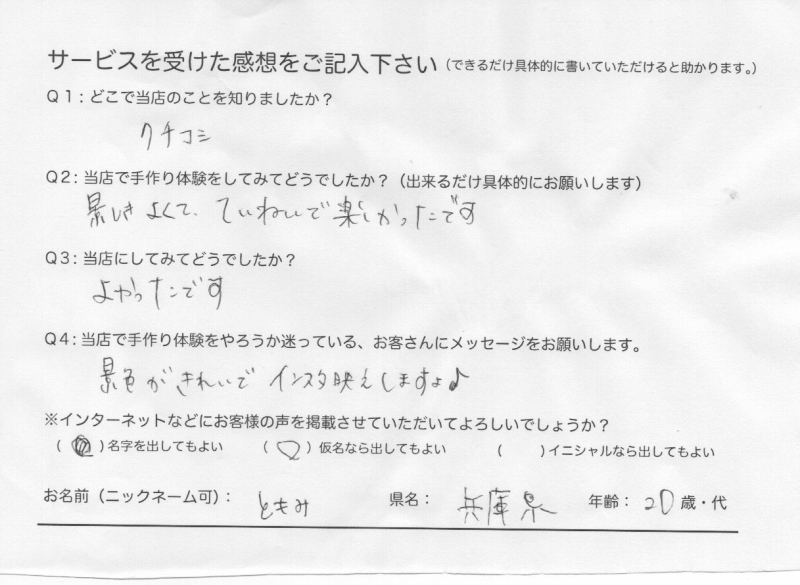 サービスを受けた感想をご記入下さい（できるだけ具体的に書いていただけると助かります。）
Ｑ１：どこで当店のことを知りましたか？
クチコミ
Ｑ２：当店で手作り体験をしてみてどうでしたか？（出来るだけ具体的にお願いします）
景しきよくて、ていねいで楽しかったです
Ｑ３：当店にしてみてどうでしたか？
よかったです
Ｑ４：当店で手作り体験をやろうか迷っている、お客さんにメッセージをお願いします。
景色がきれいで インスタ映えしますよ♪
※インターネットなどにお客様の声を掲載させていただいてよろしいでしょうか？
（　）名字を出してもよい （○）仮名なら出してもよい （　）イニシャルなら出してもよい
お名前（ニックネーム可）： ともみ 県名： 兵庫県 年齢： 20 歳・代